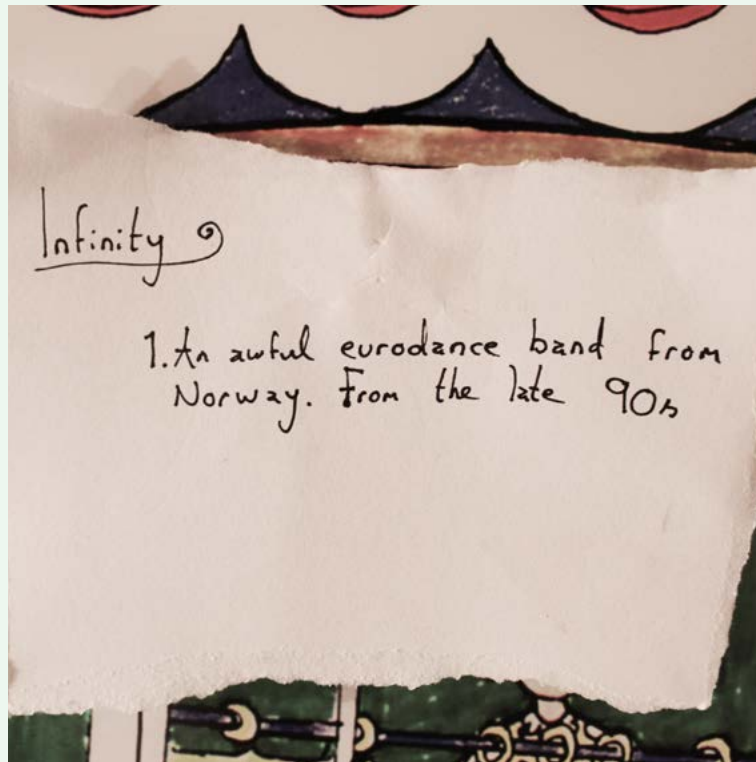 Infinity
1. An awful eurodance band from
Norway. From the late 90s